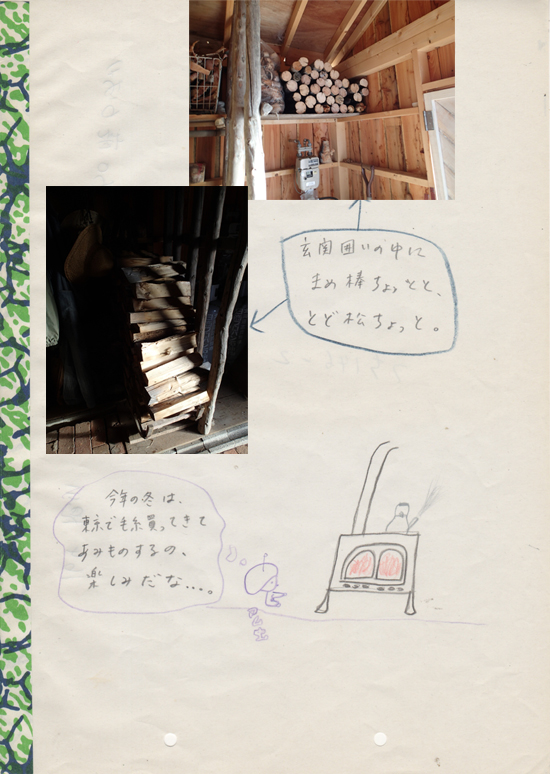 玄関囲いの中に
まめ棒ちょっとと、
とど松ちょっと。
今年の冬は、
東京で毛糸買ってきて
あみものするの、
楽しみだな…。